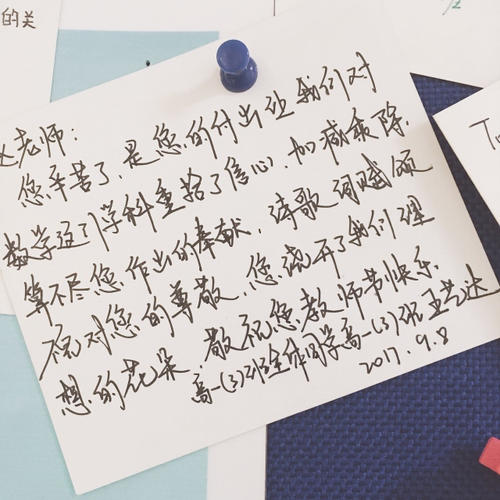 的关
老师：
您辛苦了，是您的付出让我们对
数学这门学科重拾了信心，加减乘除，
算不尽您作出的奉献，诗歌词赋颂
不完对您的尊敬，您浇开了我们理
想的花朵，敬祝您教师节快乐
高一(3)班全体同学高一(3)班王艺达
2017.9.8